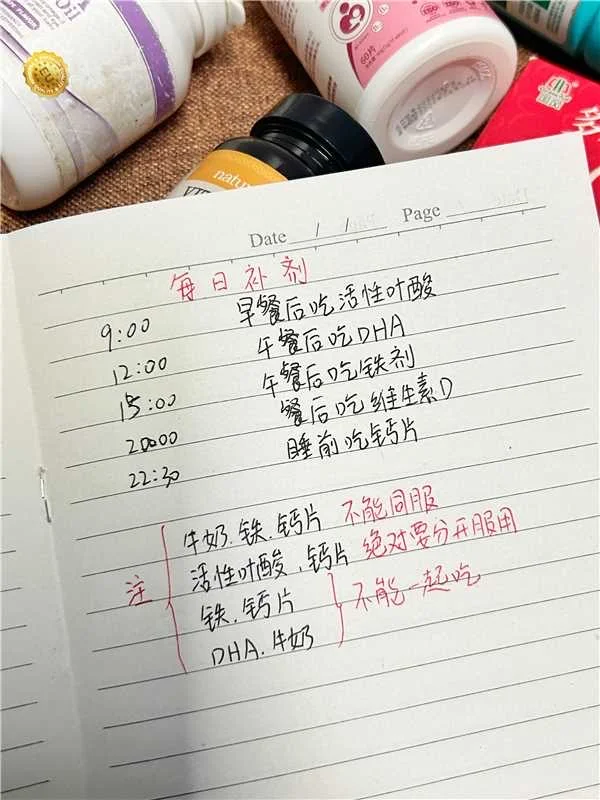 Oil
60片
natu
VIT
Date / / Page
每日补剂
9:00 早餐后吃活性叶酸
12:00 午餐后吃DHA
15:00 午餐后吃铁剂
20000 餐后吃维生素D
22:30 睡前吃钙片
注
牛奶.铁.钙片 不能同服
活性叶酸,钙片 绝对要分开服用
铁.钙片
DHA.牛奶
不能一起吃